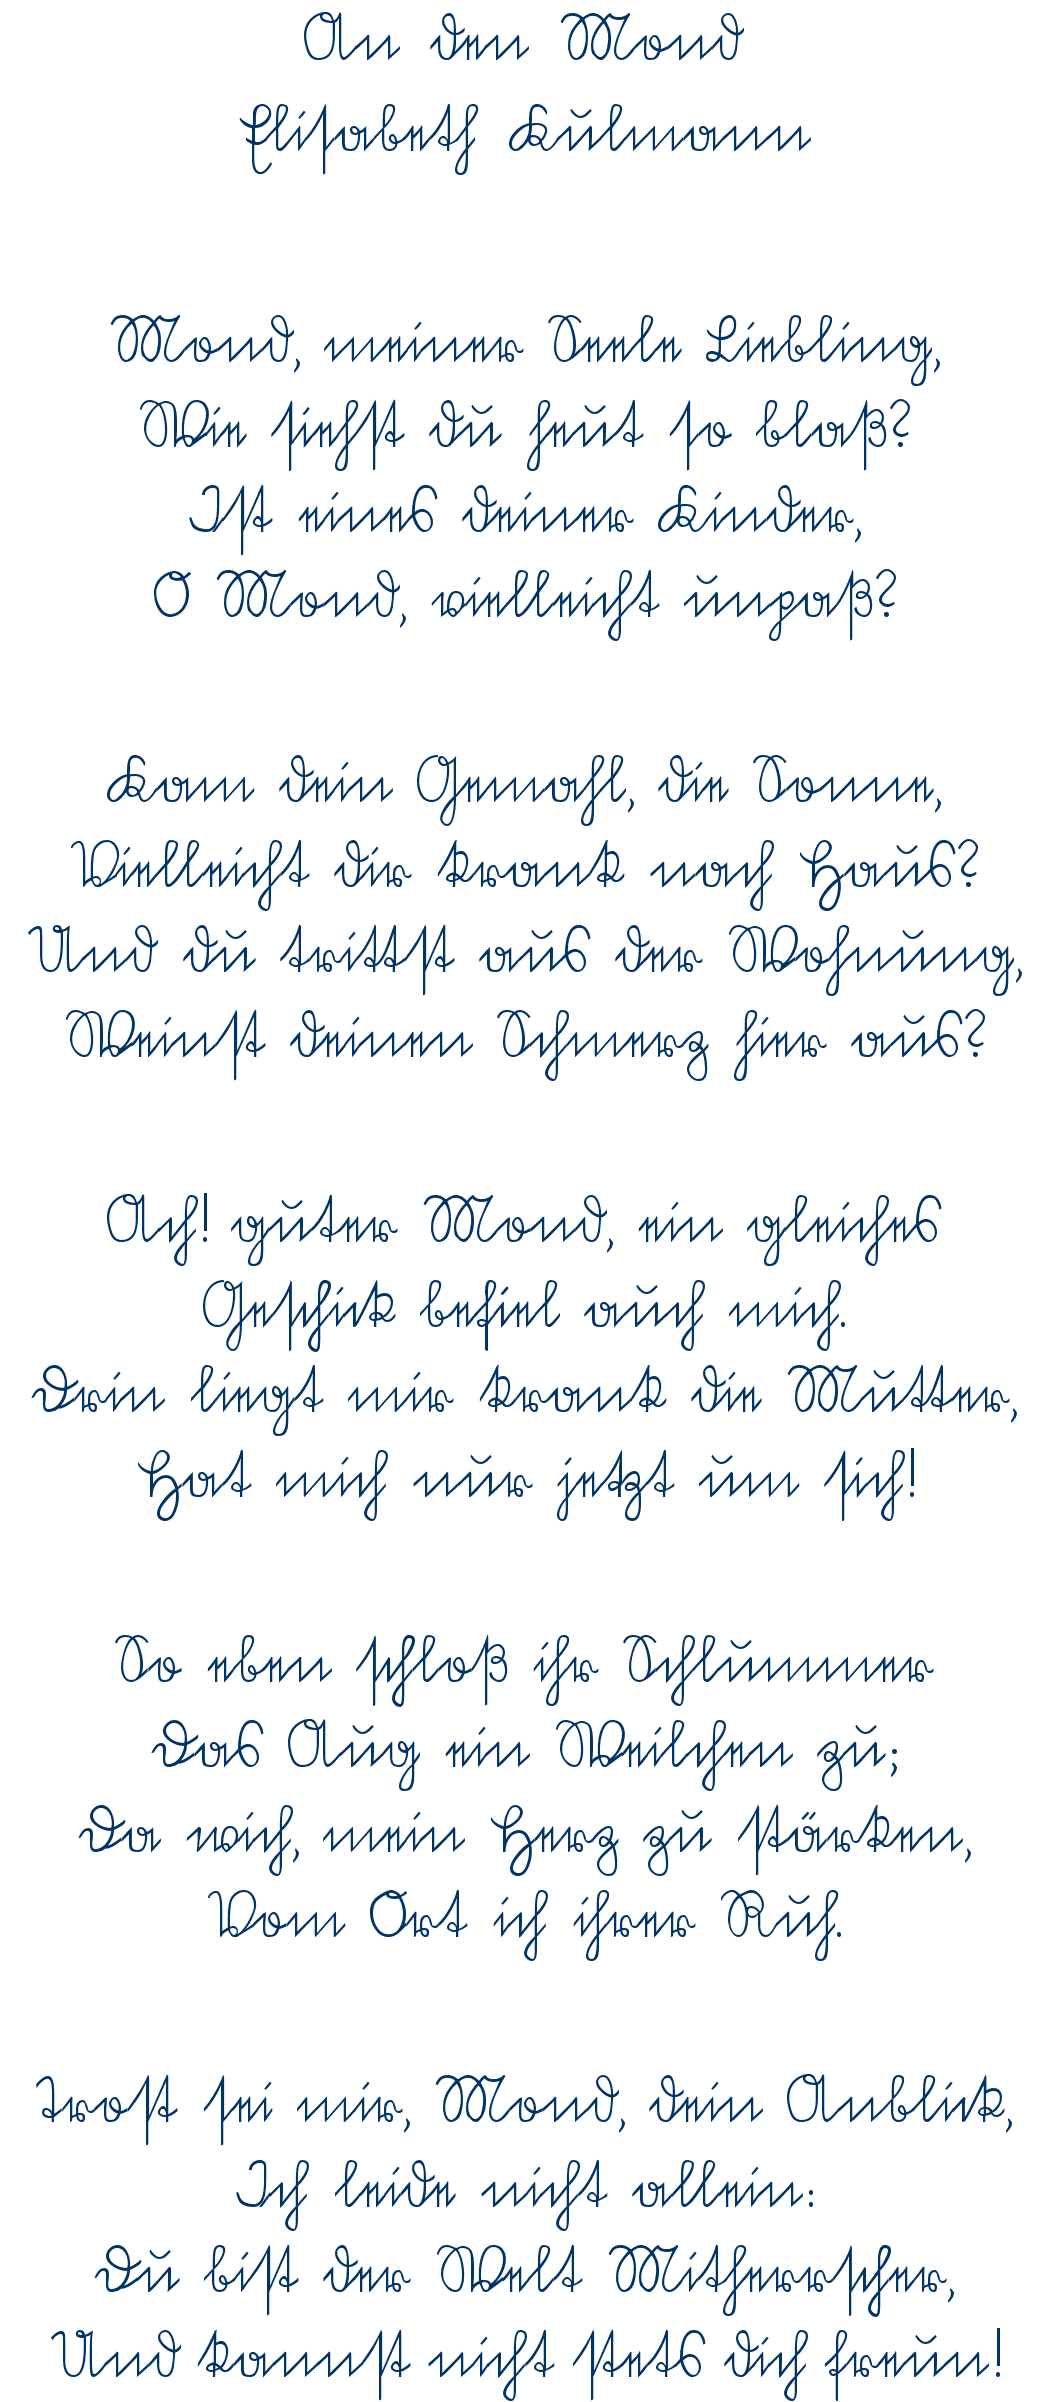 An den Mond
Elisabeth Kulmann
Mond, meiner Seele Liebling,
Wie siehst du heut so blaß?
Ist eines deiner Kinder,
O Mond, vielleicht unpaß?
Kam dein Gemahl, die Sonne,
Vielleicht dir krank nach Haus?
Und du trittst aus der Wohnung,
Weinst deinen Schmerz hier aus?
Ach! guter Mond, ein gleiches
Geschick befiel auch mich.
Drin liegt mir krank die Mutter,
Hat mich nur jetzt um sich!
So eben schloß ihr Schlummer
Das Aug ein Weilchen zu;
Da wich, mein Herz zu stärken,
Vom Ort ich ihrer Ruh.
Trost sei mir, Mond, dein Anblick,
Ich leide nicht allein:
Du bist der Welt Mitherrscher,
Und kannst nicht stets dich freun!